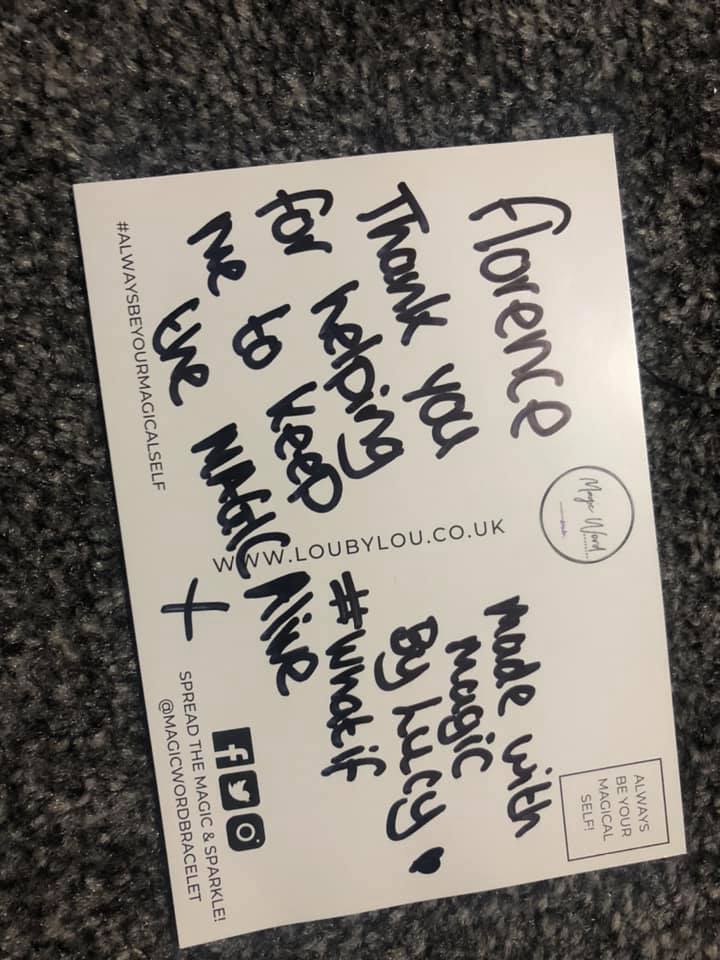 Florence
Thank you
for helping
me to keep
the MAGIC Alive
#whatif
+
Magic Word
made with
magic
By Lucy
ALWAYS
BE YOUR
MAGICAL
SELF!
WWW.LOUBYLOU.CO.UK
#ALWAYSBEYOURMAGICALSELF
SPREAD THE MAGIC & SPARKLE!
@MAGICWORDBRACELET